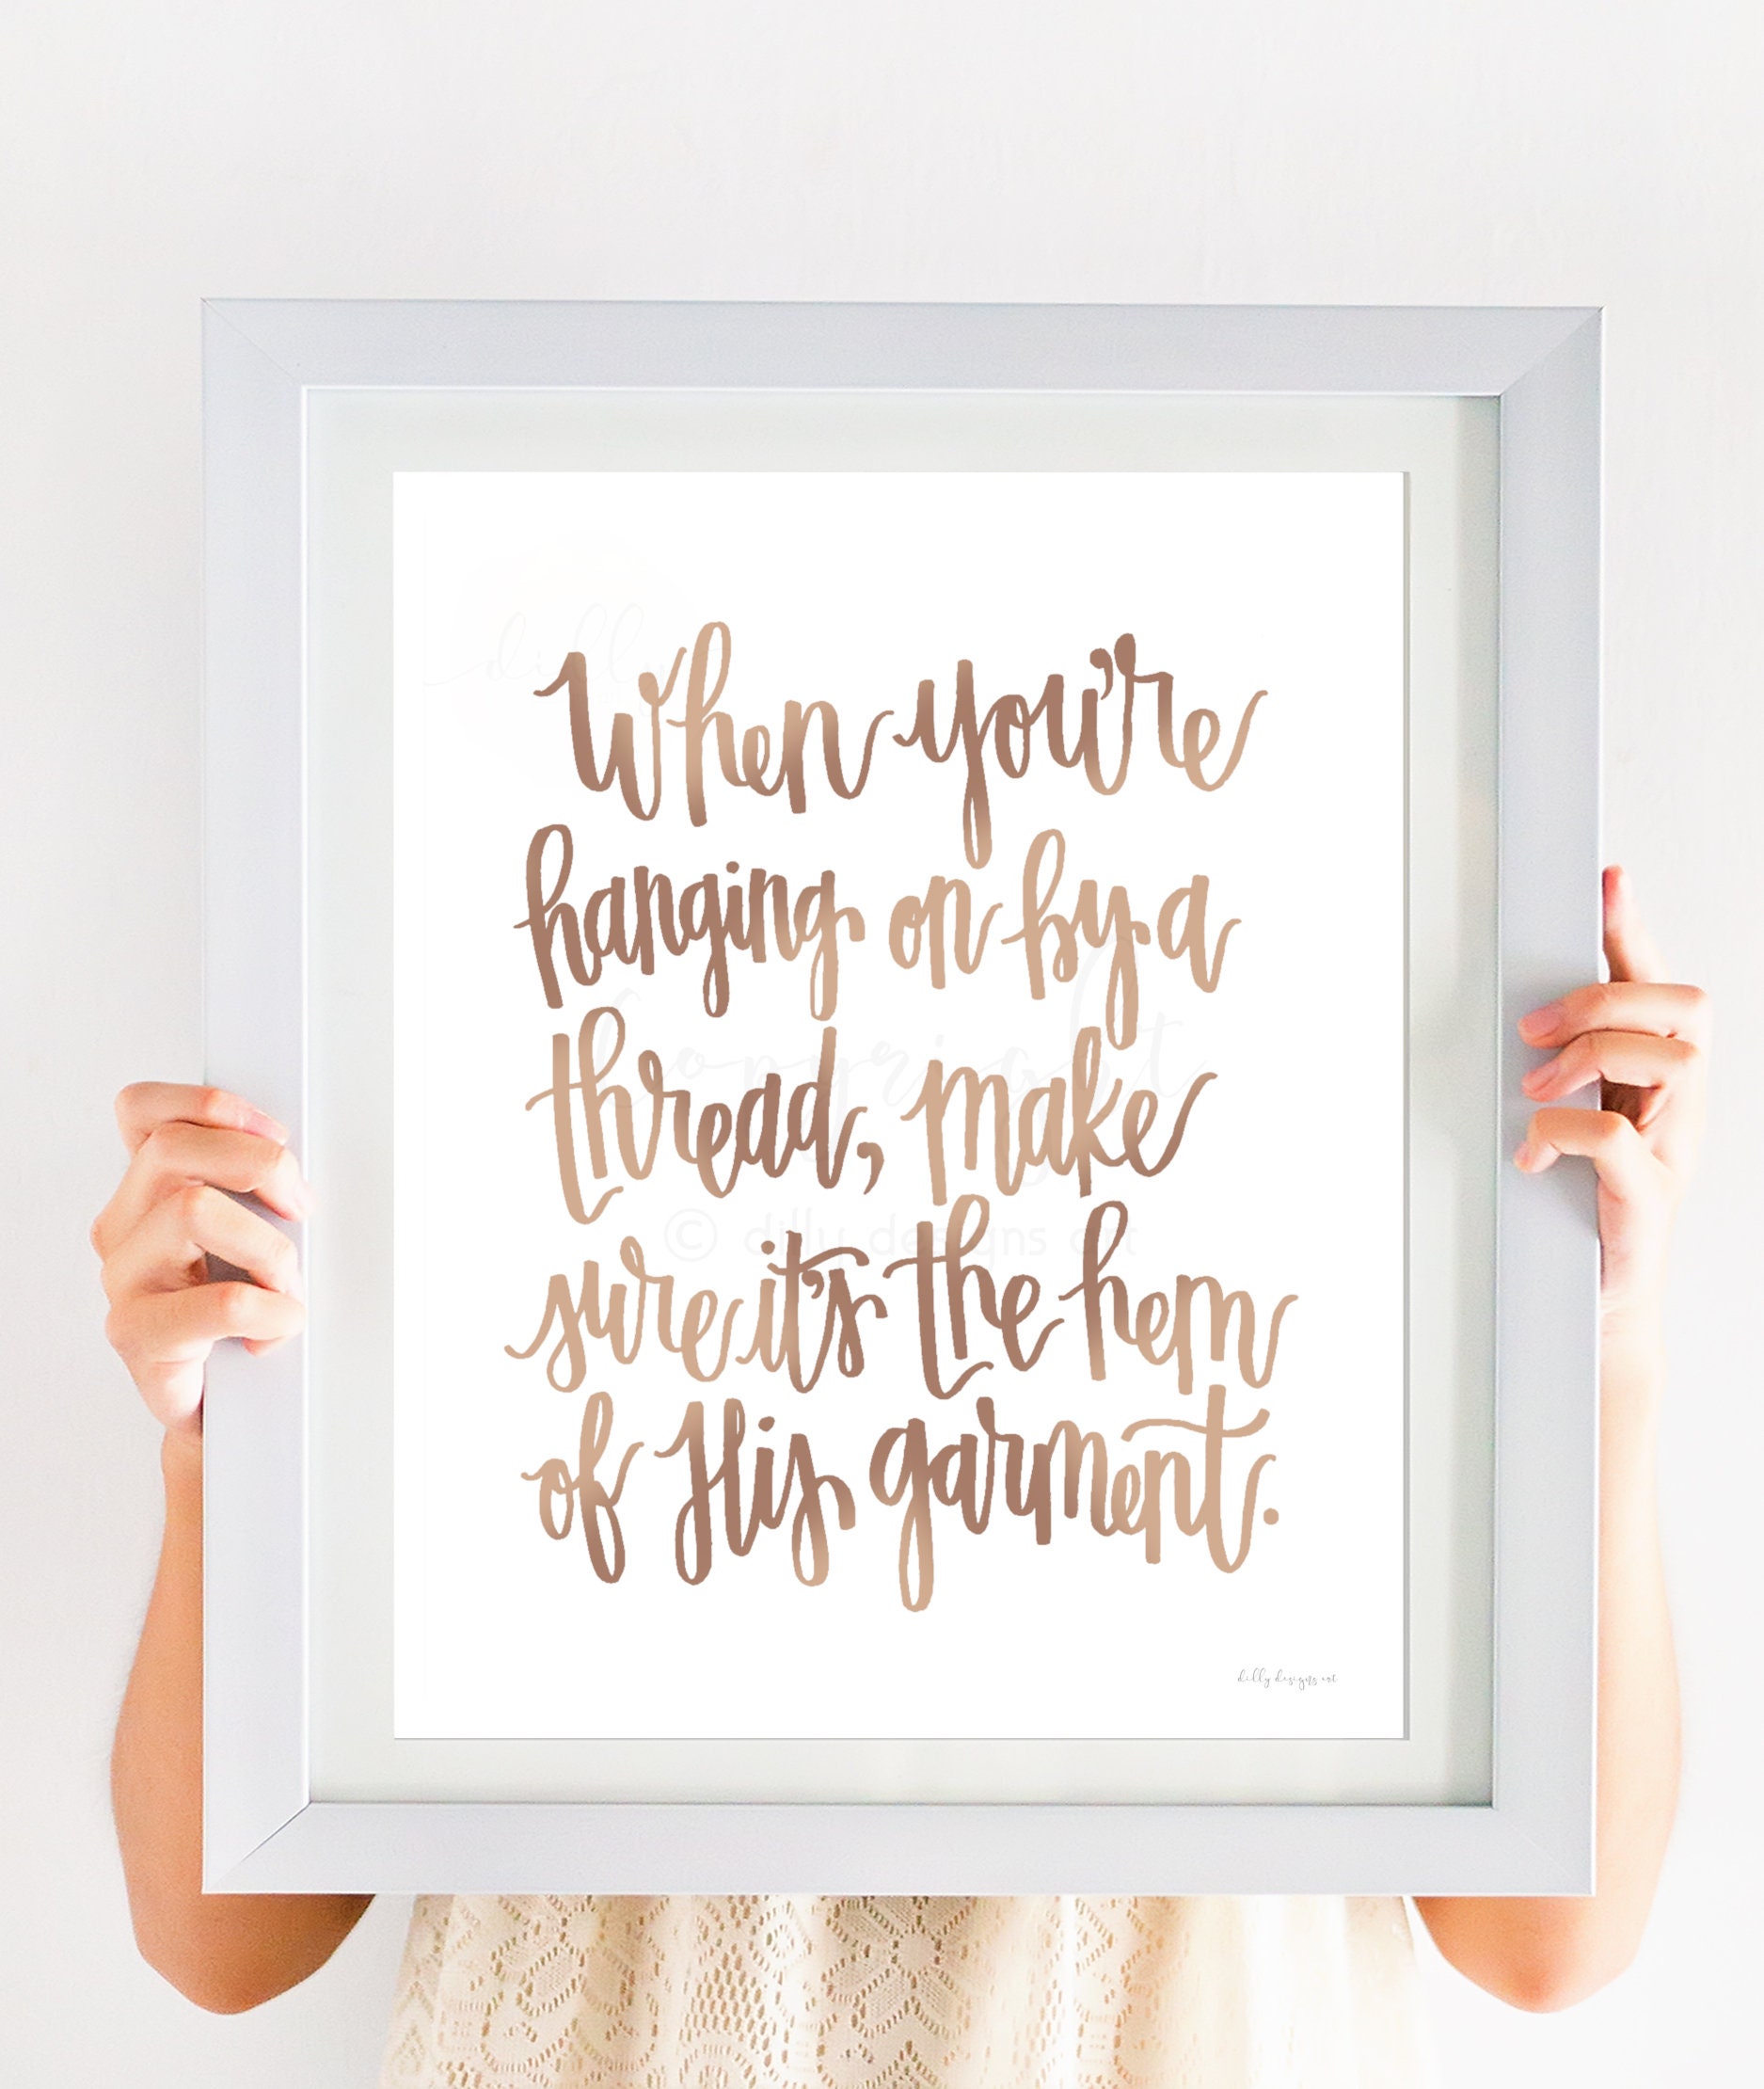 When you're
hanging on by a
thread, make
sure it's the hem
of His garment.
dilly
copyright
© dilly designs art
dilly designs art